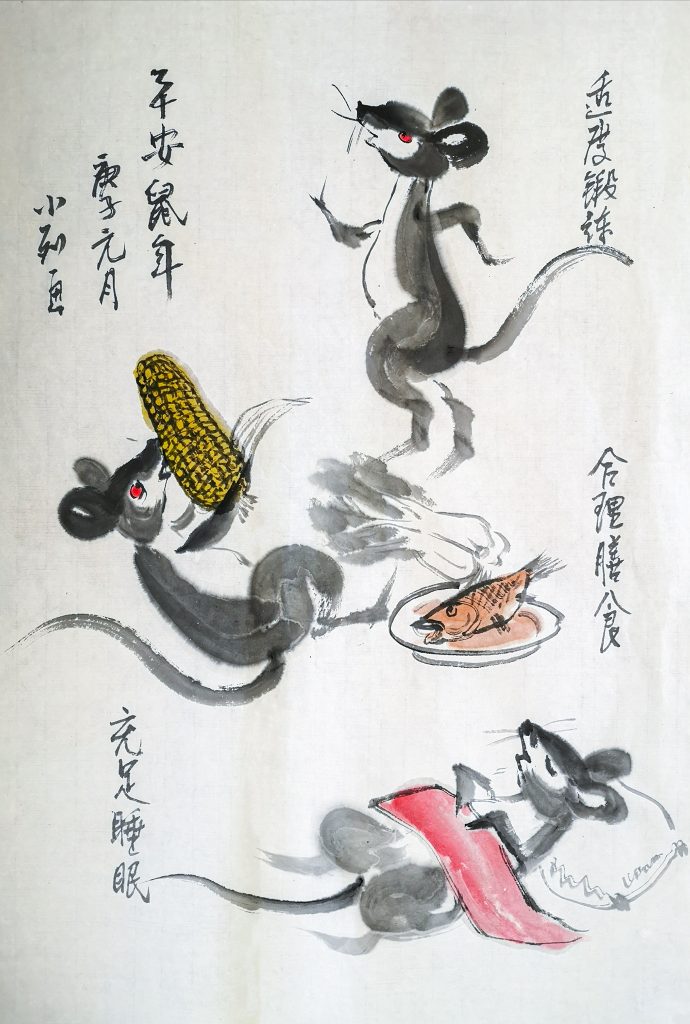 适度锻炼
平安鼠年
庚子元月
小列画
合理膳食
充足睡眠